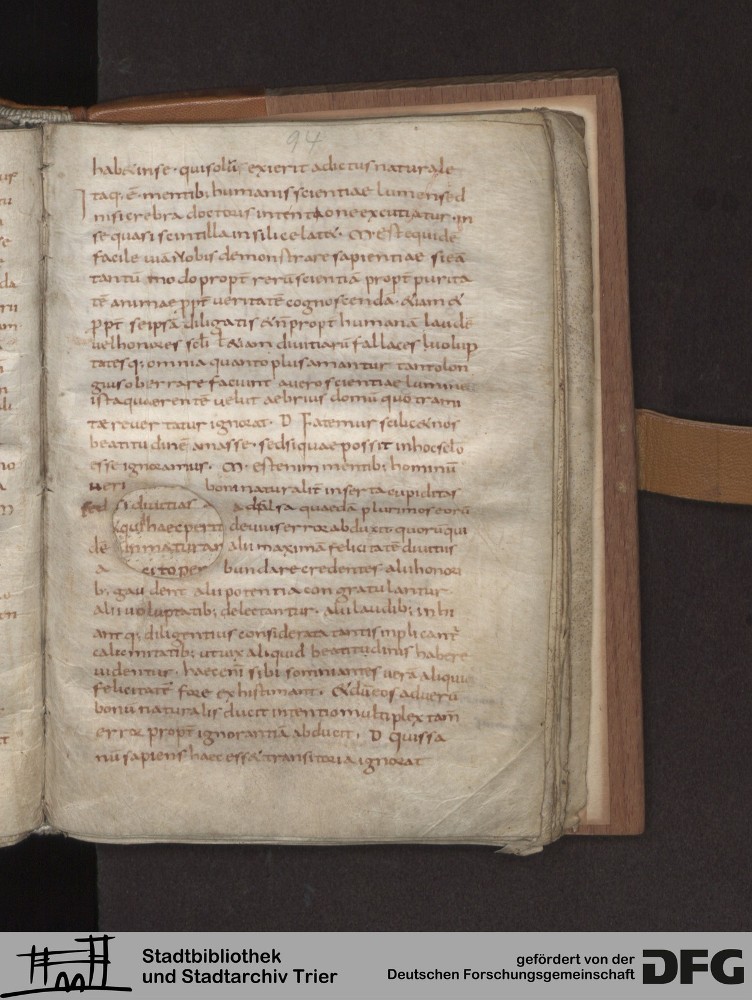 94
habet in se · qui solu exierit ad ictus naturale
Itaq; ē · mentib; humanis scientiae lumen sed
nisi crebra doctoris intentione excutiatur · in
se quasi scintilla in silice latet · M · est equidē
facile uiā uobis demonstrare sapientiae si eā
tantū modo propt rerū scientiā propt purita
tē animae ppt ueritatē cognoscenda · & iam &
ppt seipsā diligatis & n̄ propt humanā laudē
uel honores scłi uel &iam diuitiarū fallaces l uolup
tates q; omnia quanto plus amantur tanto lon
gius oberrare faciunt a uero scientiae lumine
ista quaerentē uelut aebrius domū quo trami
tae reuertatur ignorat · D Fatemur scilic& nos
beatitudinē amasse · sed si quae possit in hoc sełō
esse ignoramus · M · est enim mentib; hominū
ueri boni naturalit̄ inserta cupiditas
sed si diuitias ad falsa quaedā plurimos eorū
qui haec perit deuius error abduxit quorū qui
dē inmaturar alii maximā felicitatē diuitiis
a cito per bundare credentes alii honori
b; gaudent alii potentia congratulantur
alii uoluptatib; delectantur · alii laudib; in hi
ant q; diligentius considerata tantis inplicant̄
calamitatib; ut uix aliquid beatitudinis habere
uidentur · haec enī sibi somniantes uerā aliquā
felicitatē fore exhistimant · & dū eos ad uerū
bonū naturalis ducit intentio multiplex tam̄
error propt ignorantiā abducit · D quis sa
nū sapiens haec esse & transitoria ignorat
Stadtbibliothek
und Stadtarchiv Trier
gefördert von der
Deutschen Forschungsgemeinschaft
DFG